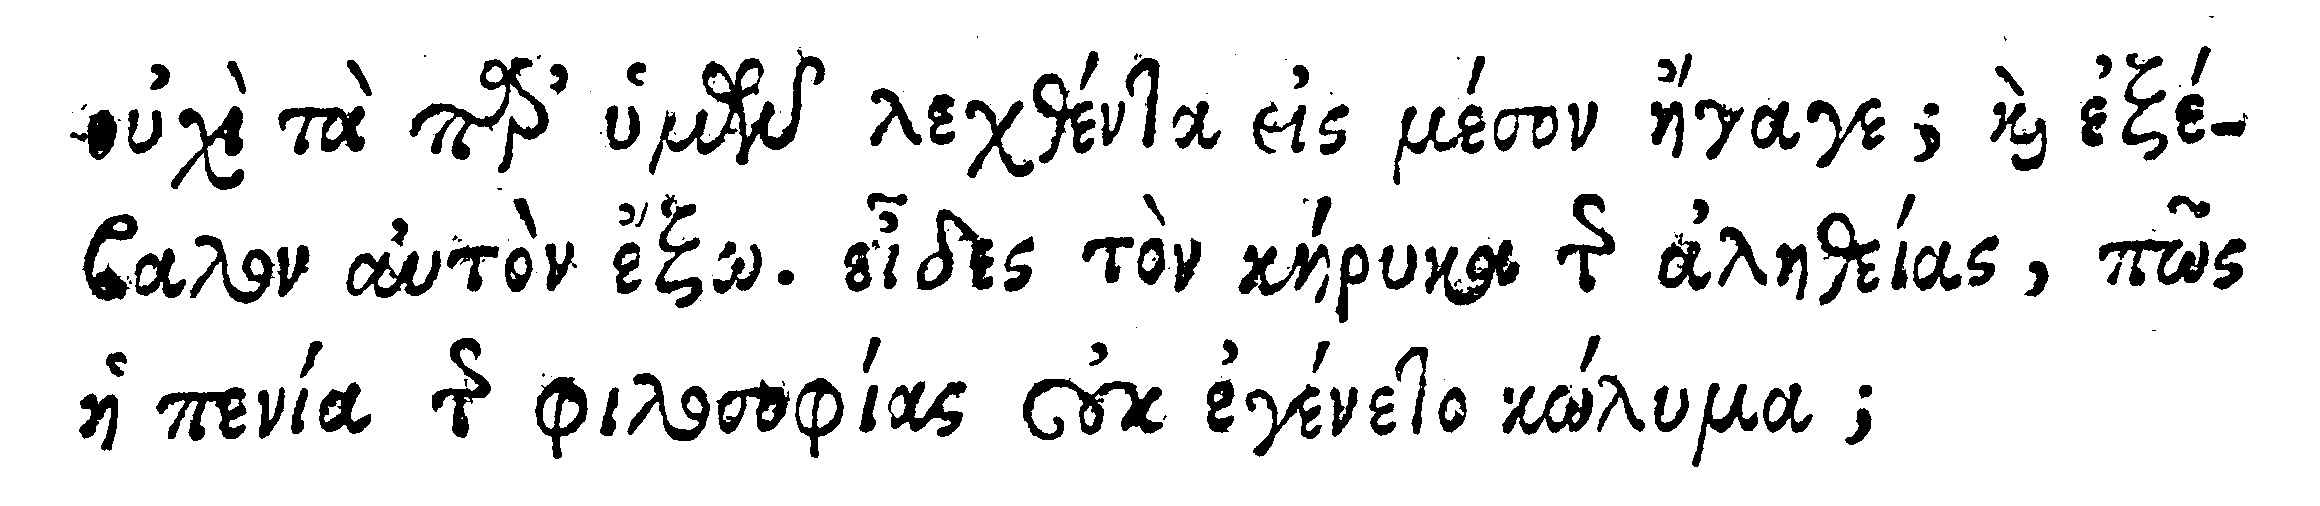 οὐχὶ τὰ παρ’ ὑμῶν λεχθέντα εἰς μέσον ἤγαγε; καὶ ἐξέ-
βαλον αὐτὸν ἔξω. εἶδες τὸν κήρυκα τῆς ἀληθείας, πῶς
ἡ πενία τῆς φιλοσοφίας οὐκ ἐγένετο κώλυμα;